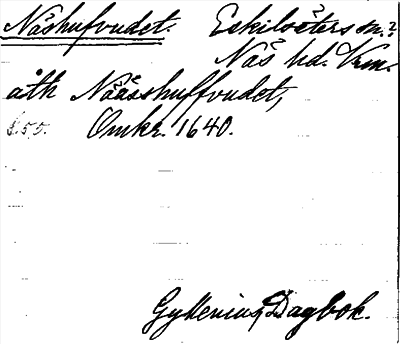 Näshufvudet. Eskilsäters sn.?
Näs hd. Vrm.
åth Näässhuffvudet,
s. 55. Omkr. 1640.
Gyllenius, Dagbok.